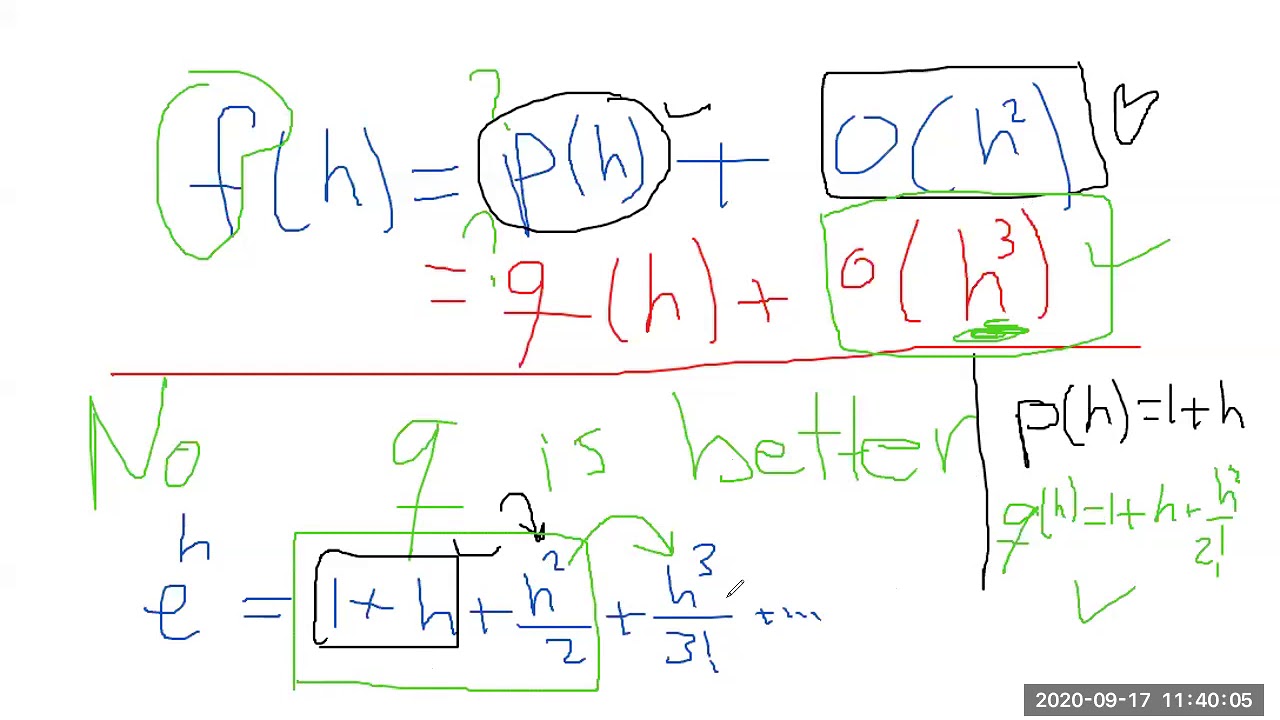 f(h) = p(h) + O(h²)
? ?
= q(h) + O(h³)
No q is better
p(h) = 1 + h
q(h) = 1 + h + h²/2!
e^h = 1 + h + h²/2 + h³/3! + ...
2020-09-17 11:40:05